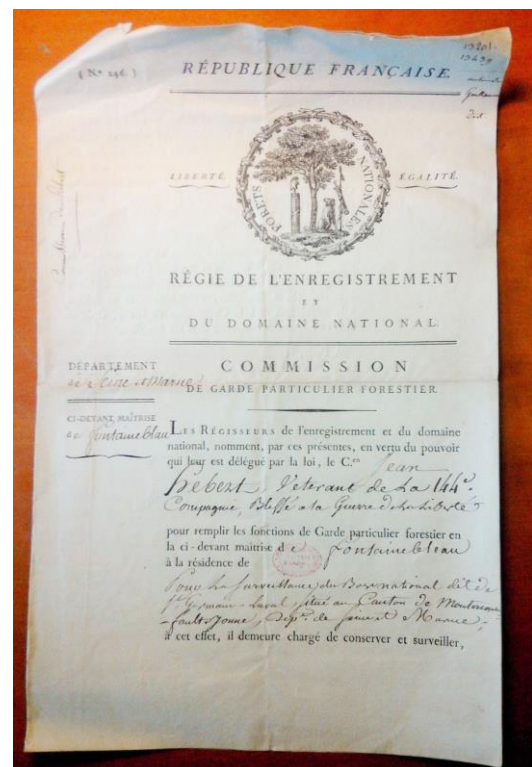 (N.º 246.)
RÉPUBLIQUE FRANÇAISE.
13201.
LIBERTÉ.
ÉGALITÉ.
FORÊTS NATIONALES
RÉGIE DE L'ENREGISTREMENT
ET
DU DOMAINE NATIONAL.
DÉPARTEMENT
de Seine & Marne
COMMISSION
DE GARDE PARTICULIER FORESTIER.
CI-DEVANT MAÎTRISE
de fontainebleau
LES RÉGISSEURS de l'enregistrement et du domaine
national, nomment, par ces présentes, en vertu du pouvoir
qui leur est délégué par la loi, le C.en Jean
hebert Veterant de La 144e
Compagnie, Blessé a la Guerre de la Liberté
pour remplir les fonctions de Garde particulier forestier en
la ci-devant maîtrise de fontainebleau
à la résidence de
Pour La Surveillance du Bois national dit de
St Germain-Laval, situé au Canton de Montereau
-fault-Yonne, Dépt. de Seine et Marne,
à cet effet, il demeure chargé de conserver et surveiller,